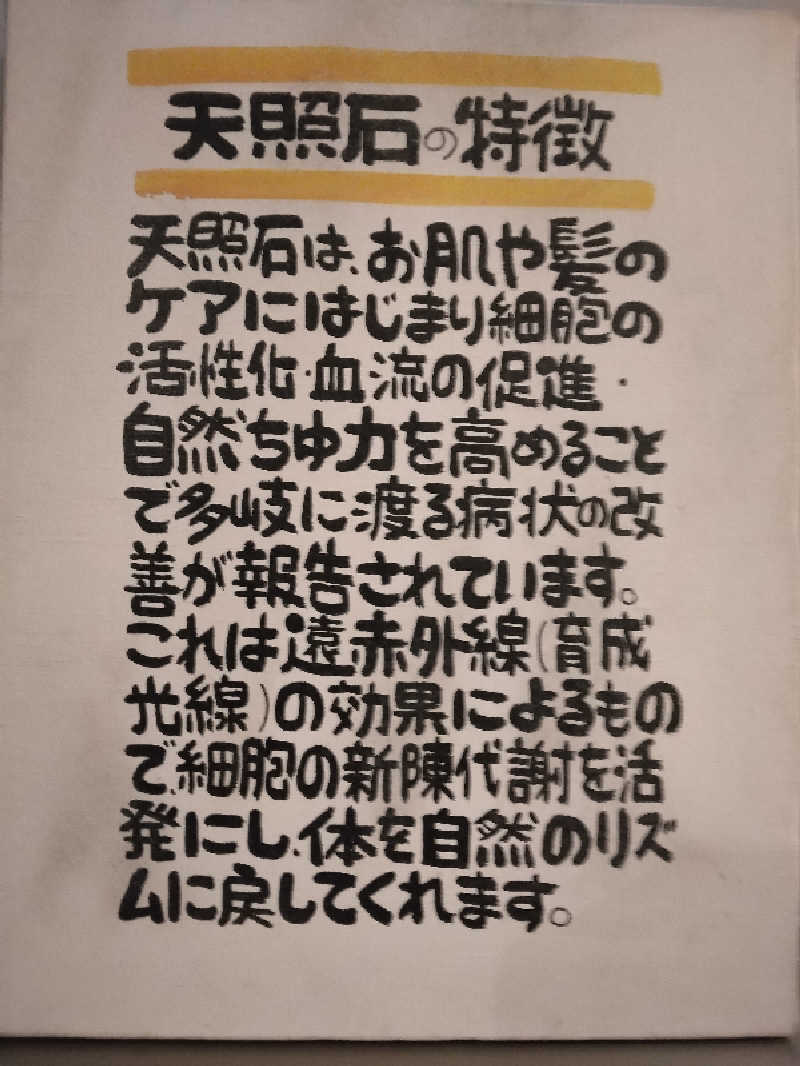 天照石の特徴
天照石は、お肌や髪の
ケアにはじまり細胞の
活性化・血流の促進・
自然ちゆ力を高めること
で多岐に渡る病状の改
善が報告されています。
これは遠赤外線(育成
光線)の効果によるもの
で、細胞の新陳代謝を活
発にし、体を自然のリズ
ムに戻してくれます。